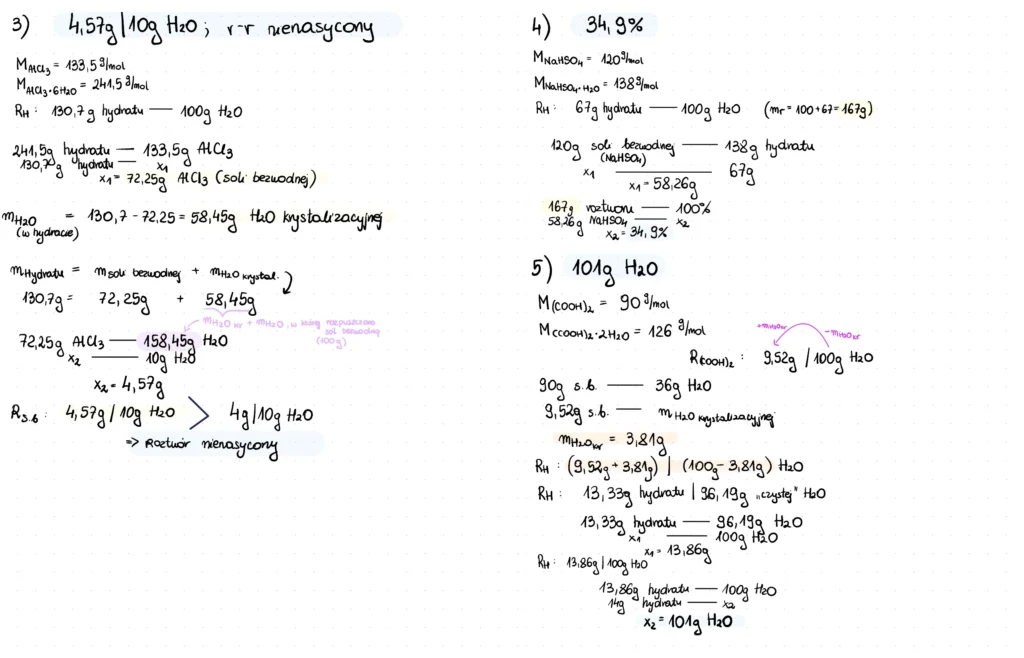 3) 4,57g|10g H2O; r-r nienasycony
MAlCl3 = 133,5 g/mol
MAlCl3·6H2O = 241,5 g/mol
RH: 130,7g hydratu — 100g H2O
241,5g hydratu — 133,5g AlCl3
130,7g hydratu — x1
x1 = 72,25g AlCl3 (soli bezwodnej)
mH2O = 130,7 - 72,25 = 58,45g H2O krystalizacyjnej
(w hydracie)
mHydratu = msoli bezwodnej + mH2O krystal.
130,7g = 72,25g + 58,45g
mH2O kr + mH2O, w której rozpuszczono
sól bezwodną
(100g)
72,25g AlCl3 — 158,45g H2O
x2 — 10g H2O
x2 = 4,57g
Rs.b: 4,57g/10g H2O > 4g/10g H2O
=> Roztwór nienasycony
4) 34,9%
MNaHSO4 = 120g/mol
MNaHSO4·H2O = 138g/mol
RH: 67g hydratu — 100g H2O (mr = 100+67 = 167g)
120g soli bezwodnej — 138g hydratu
(NaHSO4)
x1 — 67g
x1 = 58,26g
167g roztworu — 100%
58,26g NaHSO4 — x2
x2 = 34,9%
5) 101g H2O
M(COOH)2 = 90 g/mol
M(COOH)2·2H2O = 126 g/mol
+mH2Okr -mH2Okr
R(COOH)2: 9,52g / 100g H2O
90g s.b. — 36g H2O
9,52g s.b. — mH2O krystalizacyjnej
mH2Okr = 3,81g
RH: (9,52g + 3,81g) | (100g - 3,81g) H2O
RH: 13,33g hydratu | 96,19g „czystej" H2O
13,33g hydratu — 96,19g H2O
x1 — 100g H2O
x1 = 13,86g
RH: 13,86g|100g H2O
13,86g hydratu — 100g H2O
14g hydratu — x2
x2 = 101g H2O